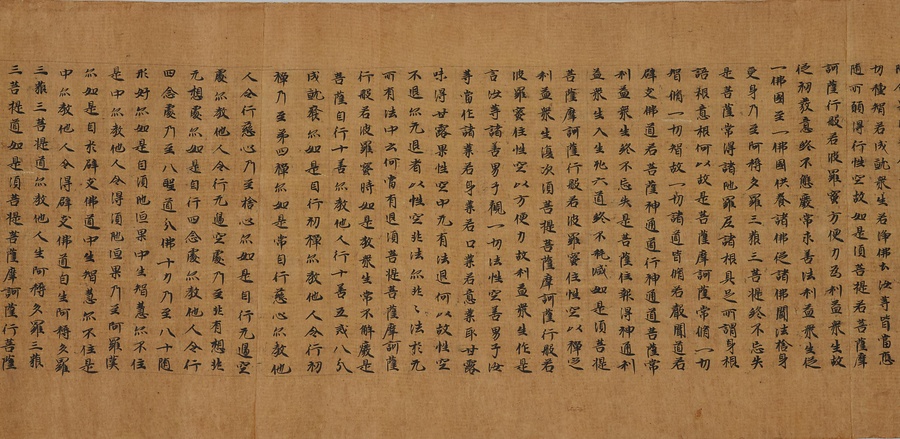 切種智若成就衆生若淨佛土汝等皆當應
隨所願得行性空故如是須菩提若菩薩摩
訶薩行般若波羅蜜方便力為利益衆生故
從初發意終不懈廢常求善法利益衆生從
一佛國至一佛國供養諸佛從諸佛聞法捨身
受身乃至阿耨多羅三藐三菩提終不忘失
是菩薩常得諸陀羅尼諸根具足所謂身根
語根意根何以故是菩薩摩訶薩常脩一切
智脩一切智故一切諸道皆脩若聲聞道若
辟支佛道若菩薩神通道行神通道菩薩常
利益衆生終不忘失是菩薩住報得神通利
益衆生入生死六道終不耗減如是須菩提
菩薩摩訶薩行般若波羅蜜住性空以禪
利益衆生復次須菩提菩薩摩訶薩行般若
波羅蜜住性空以方便力故利益衆生作是
言汝等諸善男子觀一切法性空善男子汝
等當作諸業若身業若口業若意業取甘露
味得甘露果性空中无有法退何以故性空
不退无退者以性空非法亦非非法於无
所有法中云何當有退須菩提菩薩摩訶薩
行般若波羅蜜時如是教衆生常不懈廢是
菩薩自行十善亦教他人行十善五戒八分
成就發亦如是自行初禪亦教他人令行初
禪乃至第四禪亦如是常自行慈心亦教他
人令行慈心乃至捨心亦如是自行无邊空
處亦教他人令行无邊空處乃至非有想非
无想處亦如是自行四念處亦教他人令行
四念處乃至八聖道分佛十力乃至八十隨
形好亦如是自須陀洹果中生智慧亦不住
是中亦教他人令得須陀洹果乃至阿羅漢
亦如是自於辟支佛道中生智慧亦不住是
中亦教他人令得辟支佛道自生阿耨多羅
三藐三菩提道亦教他人生阿耨多羅三藐
三菩提道如是須菩提菩薩摩訶薩行菩薩